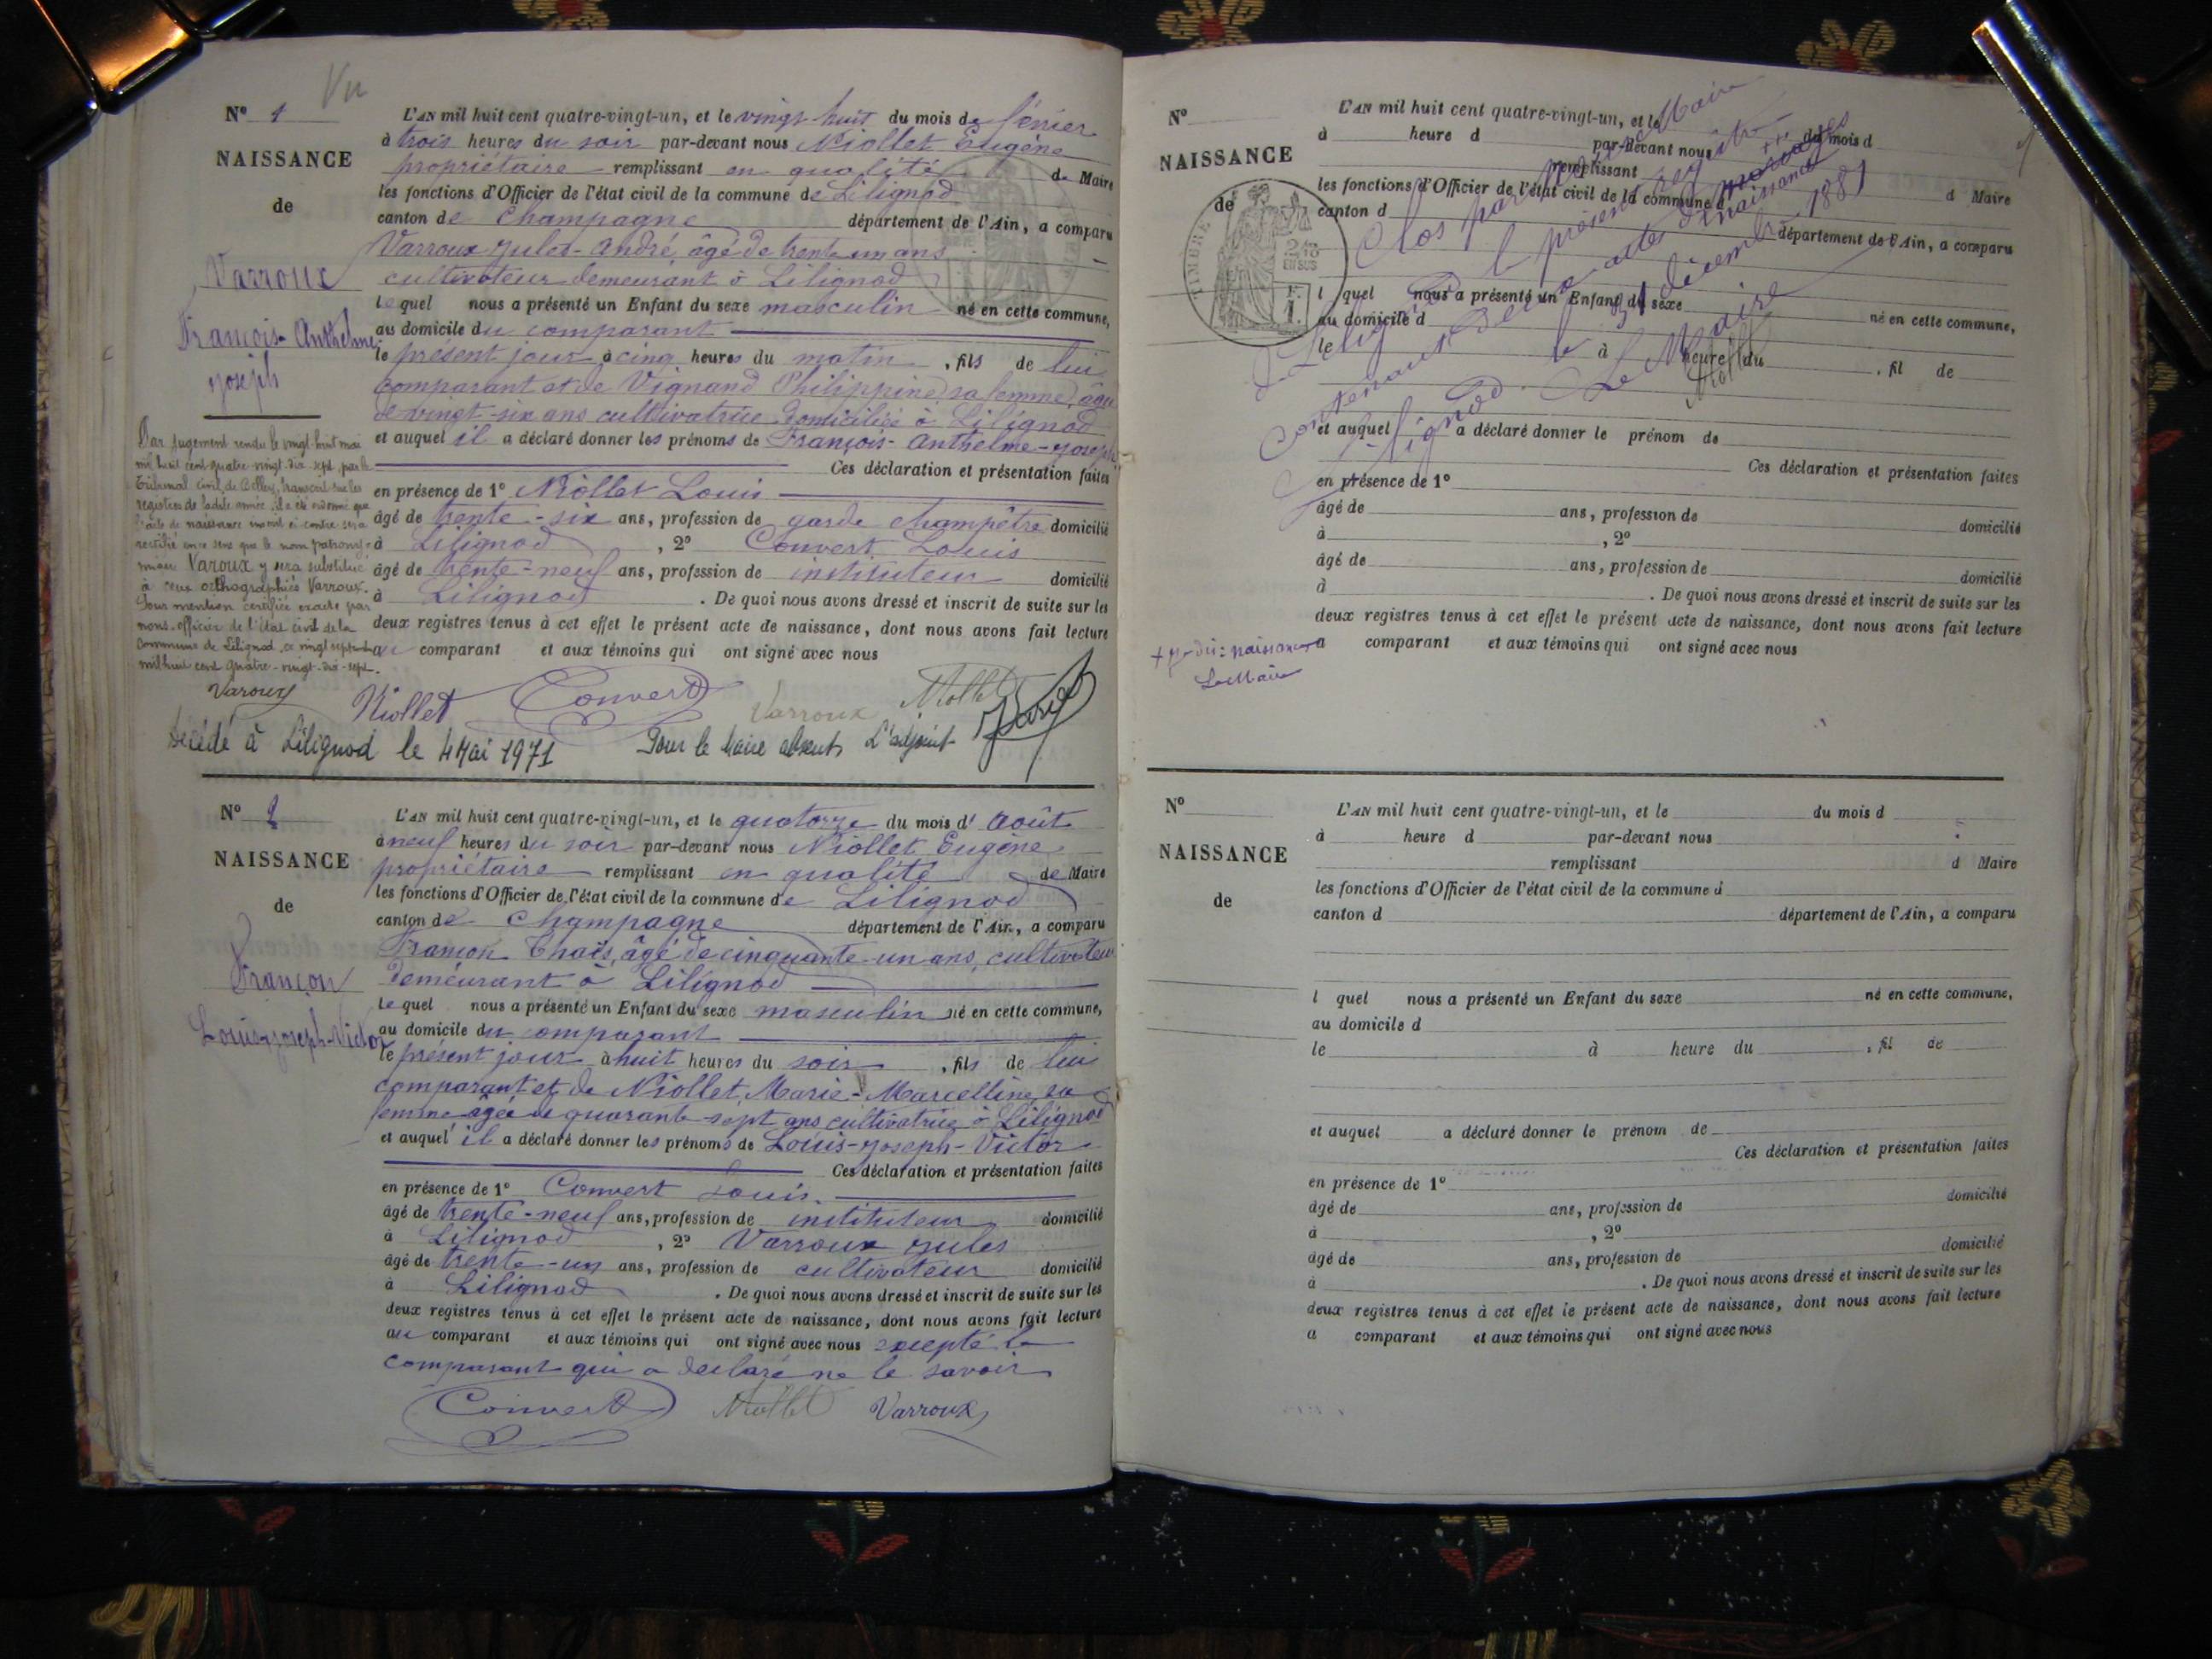 Vu
N° 1
NAISSANCE
de
Varroux
François-Anthelme
Joseph
L'AN mil huit cent quatre-vingt-un, et le vingt-huit du mois de février
à trois heures du soir par-devant nous Niollet Eugène
propriétaire remplissant en qualité de Maire
les fonctions d'Officier de l'état civil de la commune de Lilignod
canton de Champagne département de l'Ain, a comparu
Varroux Jules-André, âgé de trente un ans
cultivateur demeurant à Lilignod
lequel nous a présenté un Enfant du sexe masculin né en cette commune,
au domicile du comparant
le présent jour à cinq heures du matin, fils de lui
comparant et de Vignand Philippine sa femme, âgée
de vingt-six ans cultivatrice domiciliée à Lilignod
et auquel il a déclaré donner les prénoms de François-Anthelme-Joseph
Ces déclaration et présentation faites
en présence de 1° Niollet Louis
âgé de trente-six ans, profession de garde champêtre domicilié
à Lilignod, 2° Convert Louis
âgé de trente-neuf ans, profession de instituteur domicilié
à Lilignod. De quoi nous avons dressé et inscrit de suite sur les
deux registres tenus à cet effet le présent acte de naissance, dont nous avons fait lecture
au comparant et aux témoins qui ont signé avec nous
Par jugement rendu le vingt-huit mai
mil huit cent quatre-vingt-dix-sept, par le
Tribunal civil de Belley, transcrit sur les
registres de ladite année, il a été ordonné que
l'acte de naissance inscrit ci-contre sera
rectifié en ce sens que le nom patrony-
mique Varoux y sera substitué
à ceux orthographiés Varroux.
Sous mention certifiée exacte par
nous, officier de l'état civil de la
commune de Lilignod, ce vingt septembre
mil huit cent quatre-vingt-dix-sept.
Varoux Niollet Convert Varroux Niollet
Décédé à Lilignod le 4 Mai 1971 Pour le Maire absent, L'adjoint
N° 2
NAISSANCE
de
Françon
Louis-Joseph-Victor
L'AN mil huit cent quatre-vingt-un, et le quatorze du mois d'Août
à neuf heures du soir par-devant nous Niollet Eugène
propriétaire remplissant en qualité de Maire
les fonctions d'Officier de l'état civil de la commune de Lilignod
canton de Champagne département de l'Ain, a comparu
Françon Thaïs, âgé de cinquante-un ans, cultivateur
demeurant à Lilignod
lequel nous a présenté un Enfant du sexe masculin né en cette commune,
au domicile du comparant
le présent jour à huit heures du soir, fils de lui
comparant et de Niollet Marie-Marcelline sa
femme âgée de quarante-sept ans cultivatrice à Lilignod
et auquel il a déclaré donner les prénoms de Louis-Joseph-Victor
Ces déclaration et présentation faites
en présence de 1° Convert Louis
âgé de trente-neuf ans, profession de instituteur domicilié
à Lilignod, 2° Varroux Jules
âgé de trente-un ans, profession de cultivateur domicilié
à Lilignod. De quoi nous avons dressé et inscrit de suite sur les
deux registres tenus à cet effet le présent acte de naissance, dont nous avons fait lecture
au comparant et aux témoins qui ont signé avec nous excepté le
comparant qui a déclaré ne le savoir
Convert Niollet Varroux
N°
NAISSANCE
de
TIMBRE
L'AN mil huit cent quatre-vingt-un, et le du mois d
à heure d par-devant nous
remplissant d Maire
les fonctions d'Officier de l'état civil de la commune d
canton d département de l'Ain, a comparu
l quel nous a présenté un Enfant du sexe né en cette commune,
au domicile d
le à heure du, fil de
et auquel a déclaré donner le prénom de
Ces déclaration et présentation faites
en présence de 1°
âgé de ans, profession de domicilié
à, 2°
âgé de ans, profession de domicilié
à. De quoi nous avons dressé et inscrit de suite sur les
deux registres tenus à cet effet le présent acte de naissance, dont nous avons fait lecture
a comparant et aux témoins qui ont signé avec nous
Clos par nous Maire
de Lilignod le présent registre
contenant deux actes de naissances
Lilignod le 31 décembre 1881
Le Maire
Niollet
naissances
Le Maire
N°
NAISSANCE
de
L'AN mil huit cent quatre-vingt-un, et le du mois d
à heure d par-devant nous
remplissant d Maire
les fonctions d'Officier de l'état civil de la commune d
canton d département de l'Ain, a comparu
l quel nous a présenté un Enfant du sexe né en cette commune,
au domicile d
le à heure du, fil de
et auquel a déclaré donner le prénom de
Ces déclaration et présentation faites
en présence de 1°
âgé de ans, profession de domicilié
à, 2°
âgé de ans, profession de domicilié
à. De quoi nous avons dressé et inscrit de suite sur les
deux registres tenus à cet effet le présent acte de naissance, dont nous avons fait lecture
a comparant et aux témoins qui ont signé avec nous